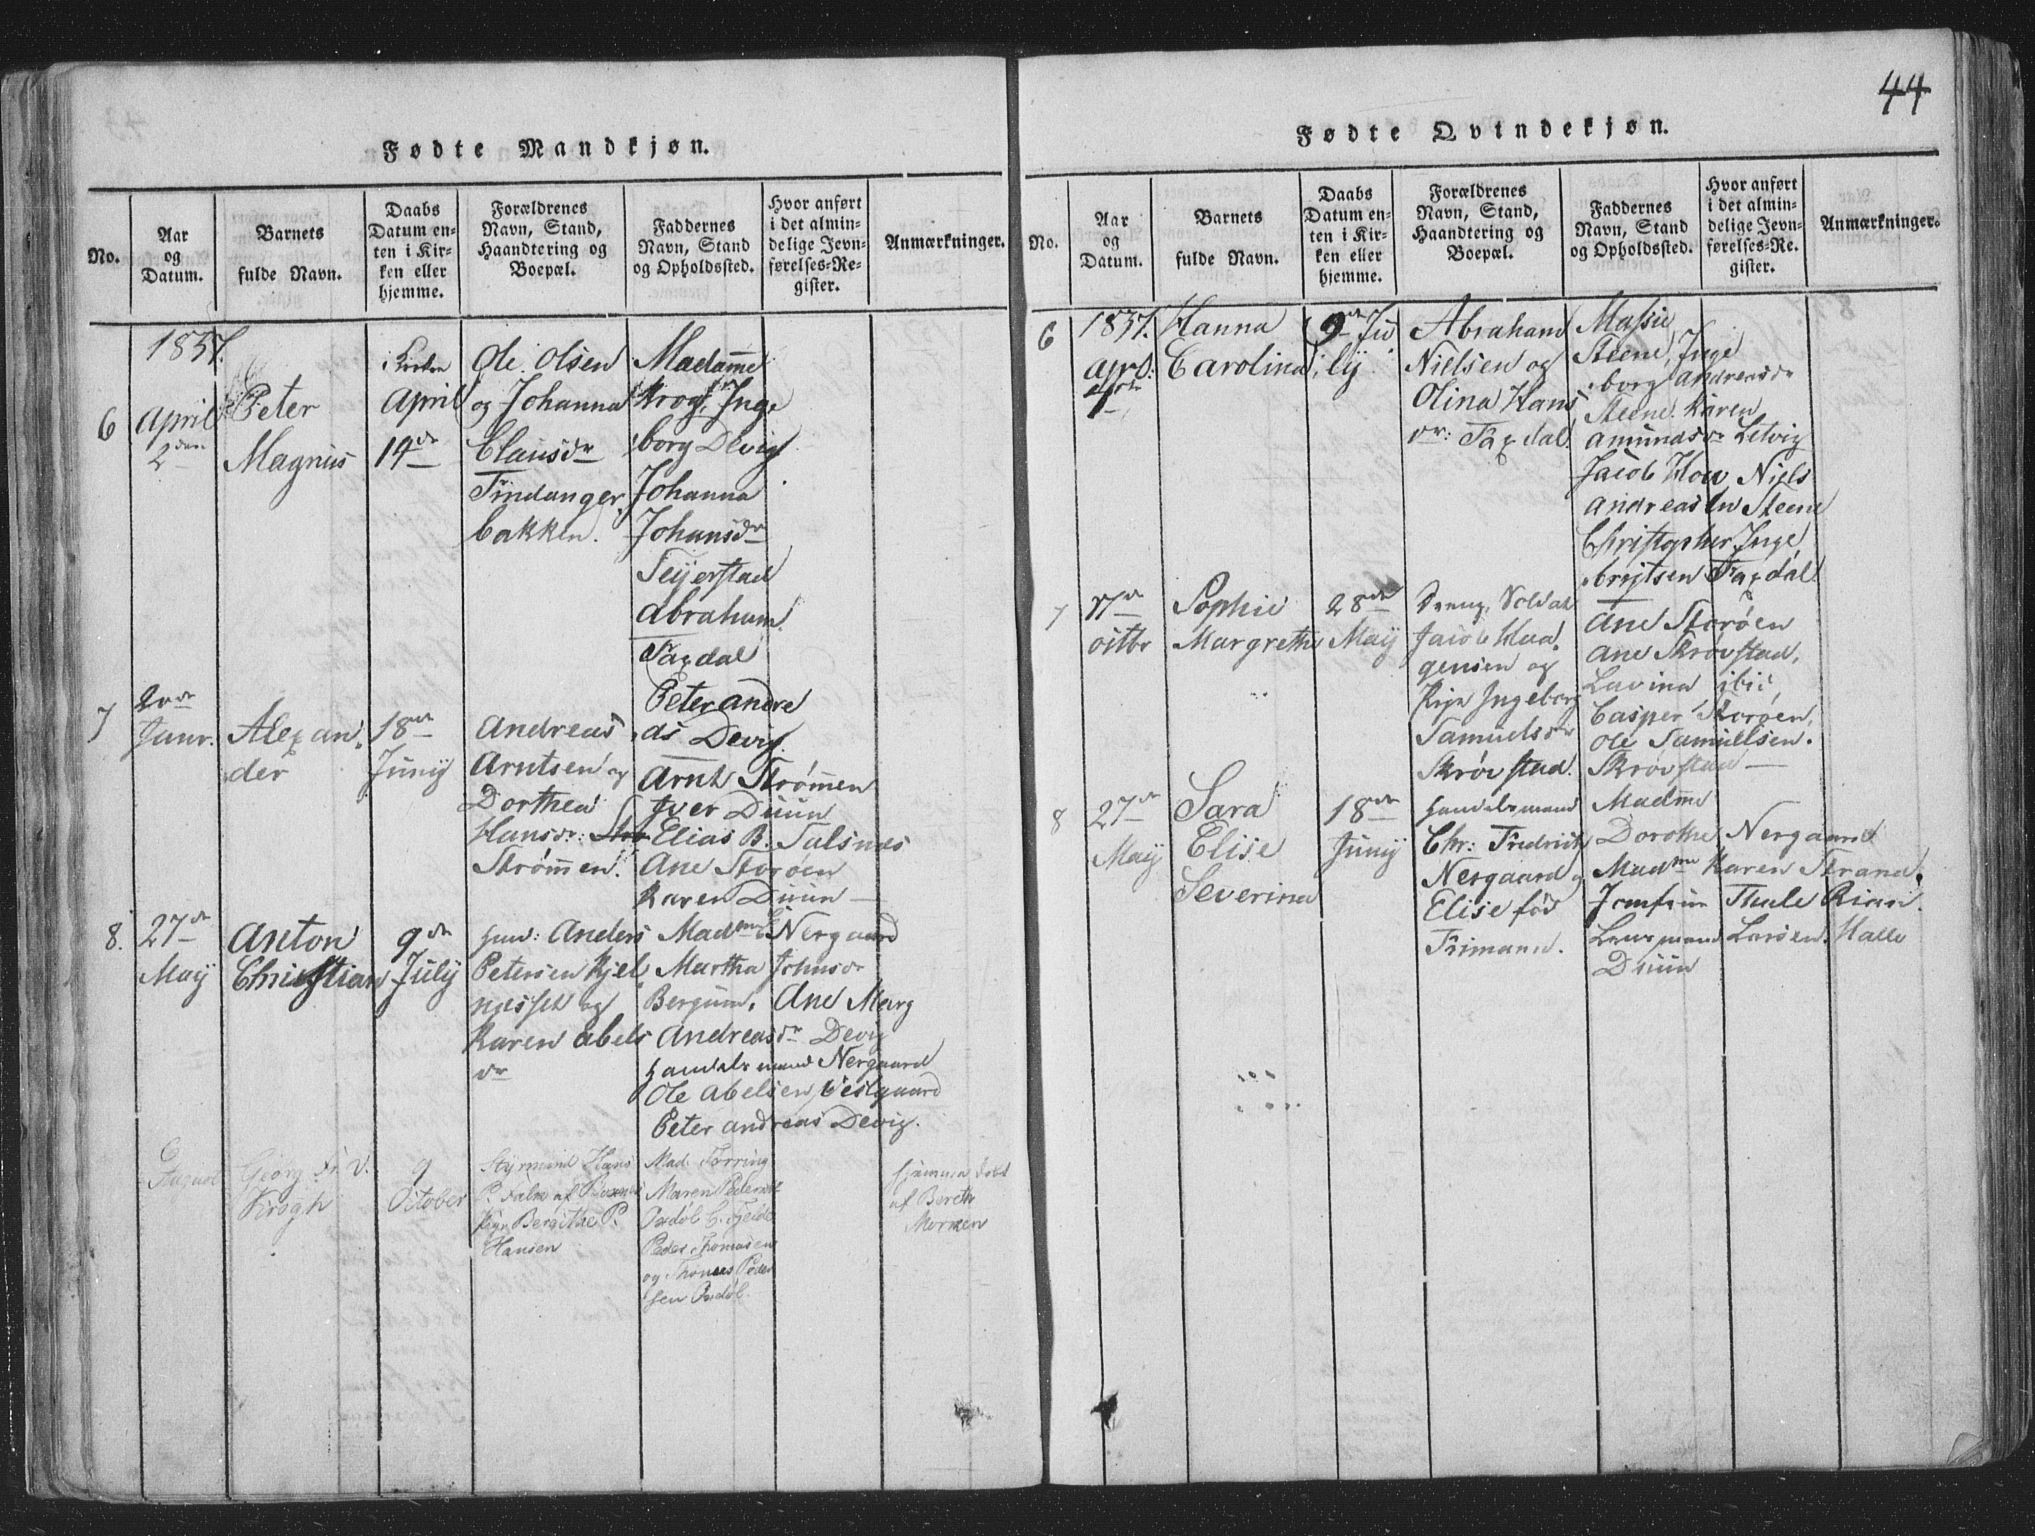 44
Fødte Mandkjøn.
No.
Aar
og
Datum.
Barnets
fulde Navn.
Daabs
Datum en-
ten i Kir-
ken eller
hjemme.
Forældrenes
Navn, Stand,
Haandtering og
Boepæl.
Faddernes
Navn, Stand
og Opholdssted.
Hvor anført
i det almin-
delige Jevn-
førelses-Re-
gister.
Anmærkninger.
1837.
6
April
2den
Peter
Magnus
i Kirken
April
14de
Ole Olsen
og Johanna
Clausdr
Tindanger
bakken.
Madame
Krog, Inge
borg Devig
Johanna
Johansdr
Seijerstad
Abraham
Faxdal
Peter Andre
as Devig.
7
Janr.
Alexan-
der
18de
Juny
Andreas
Arntsen og
Dorthea
Hansdr:
Strømmen.
Arnt Strømmen
Iver Duun
Elias B. Salsnæs
Ane Storøen
Karen Duun
8.
27de
May
Anton
Christian
9de
July
Anders
Petersen Kjel
næsset og
Karen Abels
dr
Madme Nergaard
Martha Johnsdr
Bergum, Ane Marg
Andreasdr Devig
Handelsmand Nergaard
Ole Abelsen Vestgaard
Peter Andreas Devig.
6
August
Georg Fr. V.
Krogh
9
October
Styrmand Hans
P. Falm af
Pige Bergithe P.
Hansen
Mad. Tørring
Maren Pedersdt
Peder Thomasen
og Thomas Peder
sen
hjemme døbt
af Bereth
Morzen
Fødte Qvindekjøn.
No.
Aar
og
Datum.
Barnets
fulde Navn.
Daabs
Datum en-
ten i Kir-
ken eller
hjemme.
Forældrenes
Navn, Stand,
Haandtering og
Boepæl.
Faddernes
Navn, Stand
og Opholdssted.
Hvor anført
i det almin-
delige Jevn-
førelses-Re-
gister.
Anmærkninger.
6
1837.
Apr:
4de
Hanna
Carolina
9de Ju
ly
Abraham
Nielsen og
Olina Hans
dr: Faxdal.
Massie
Steene, Inge
borg Andreasdr
Steene. Karen
Amundsdr Letvig
Jacob How, Niels
Andreasen Steene
Christopher Inge
brigtsen Faxdal
7
17de
Sophie
Margrethe
28de
May
Dreng, Soldat
Jacob Haa
gensen og
Pige Ingeborg
Samuelsdr
Skrøvstad.
Ane Storøen
Ane Skrøvstad,
Lavina ibid,
Casper Storøen,
Ole Samuelsen.
Skrøvstad
8
27de
May
Sara
Elise
Severina
18de
Juny
Handelsmand
Chr: Fredrik
Nergaard og
Elise fød
Trimann.
Madme
Dorothe Nergaard
Madme Karen Strand.
Jomfrue Thale Rian.
Lensmand Larsen. Halle
Duun